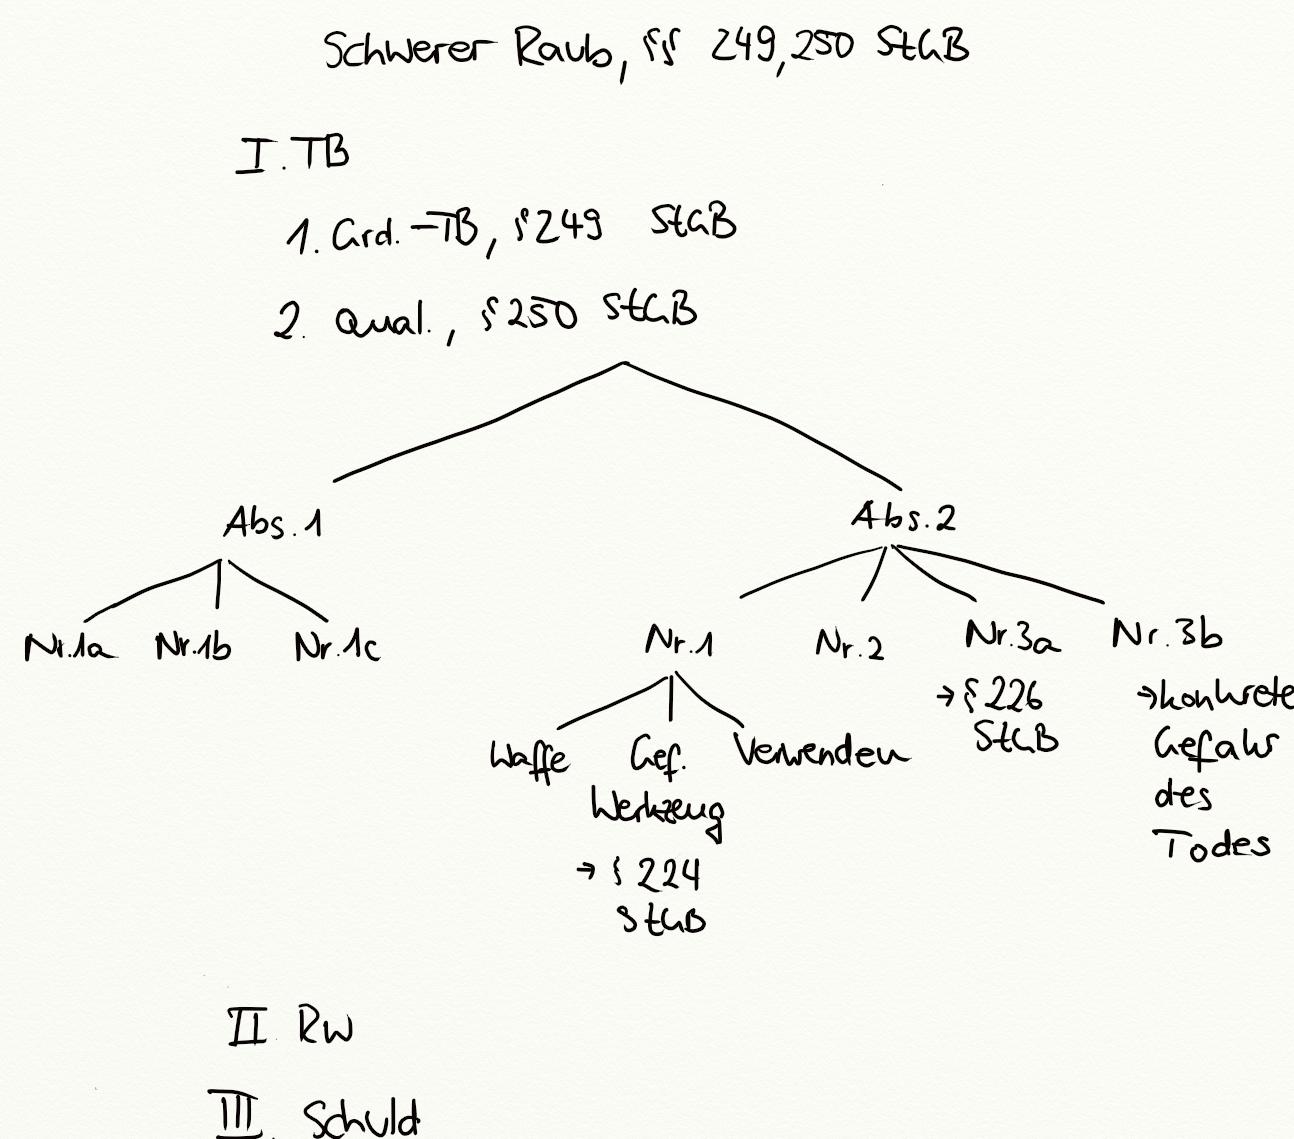 Schwerer Raub, §§ 249, 250 StGB
I. TB
1. Grd.-TB, § 249 StGB
2. Qual., § 250 StGB
Abs. 1 Abs. 2
Nr. 1a Nr. 1b Nr. 1c Nr. 1 Nr. 2 Nr. 3a Nr. 3b
→ § 226 → konkrete
StGB Gefahr
Waffe Gef. Verwenden des
Werkzeug Todes
→ § 224
StGB
II. RW
III. Schuld